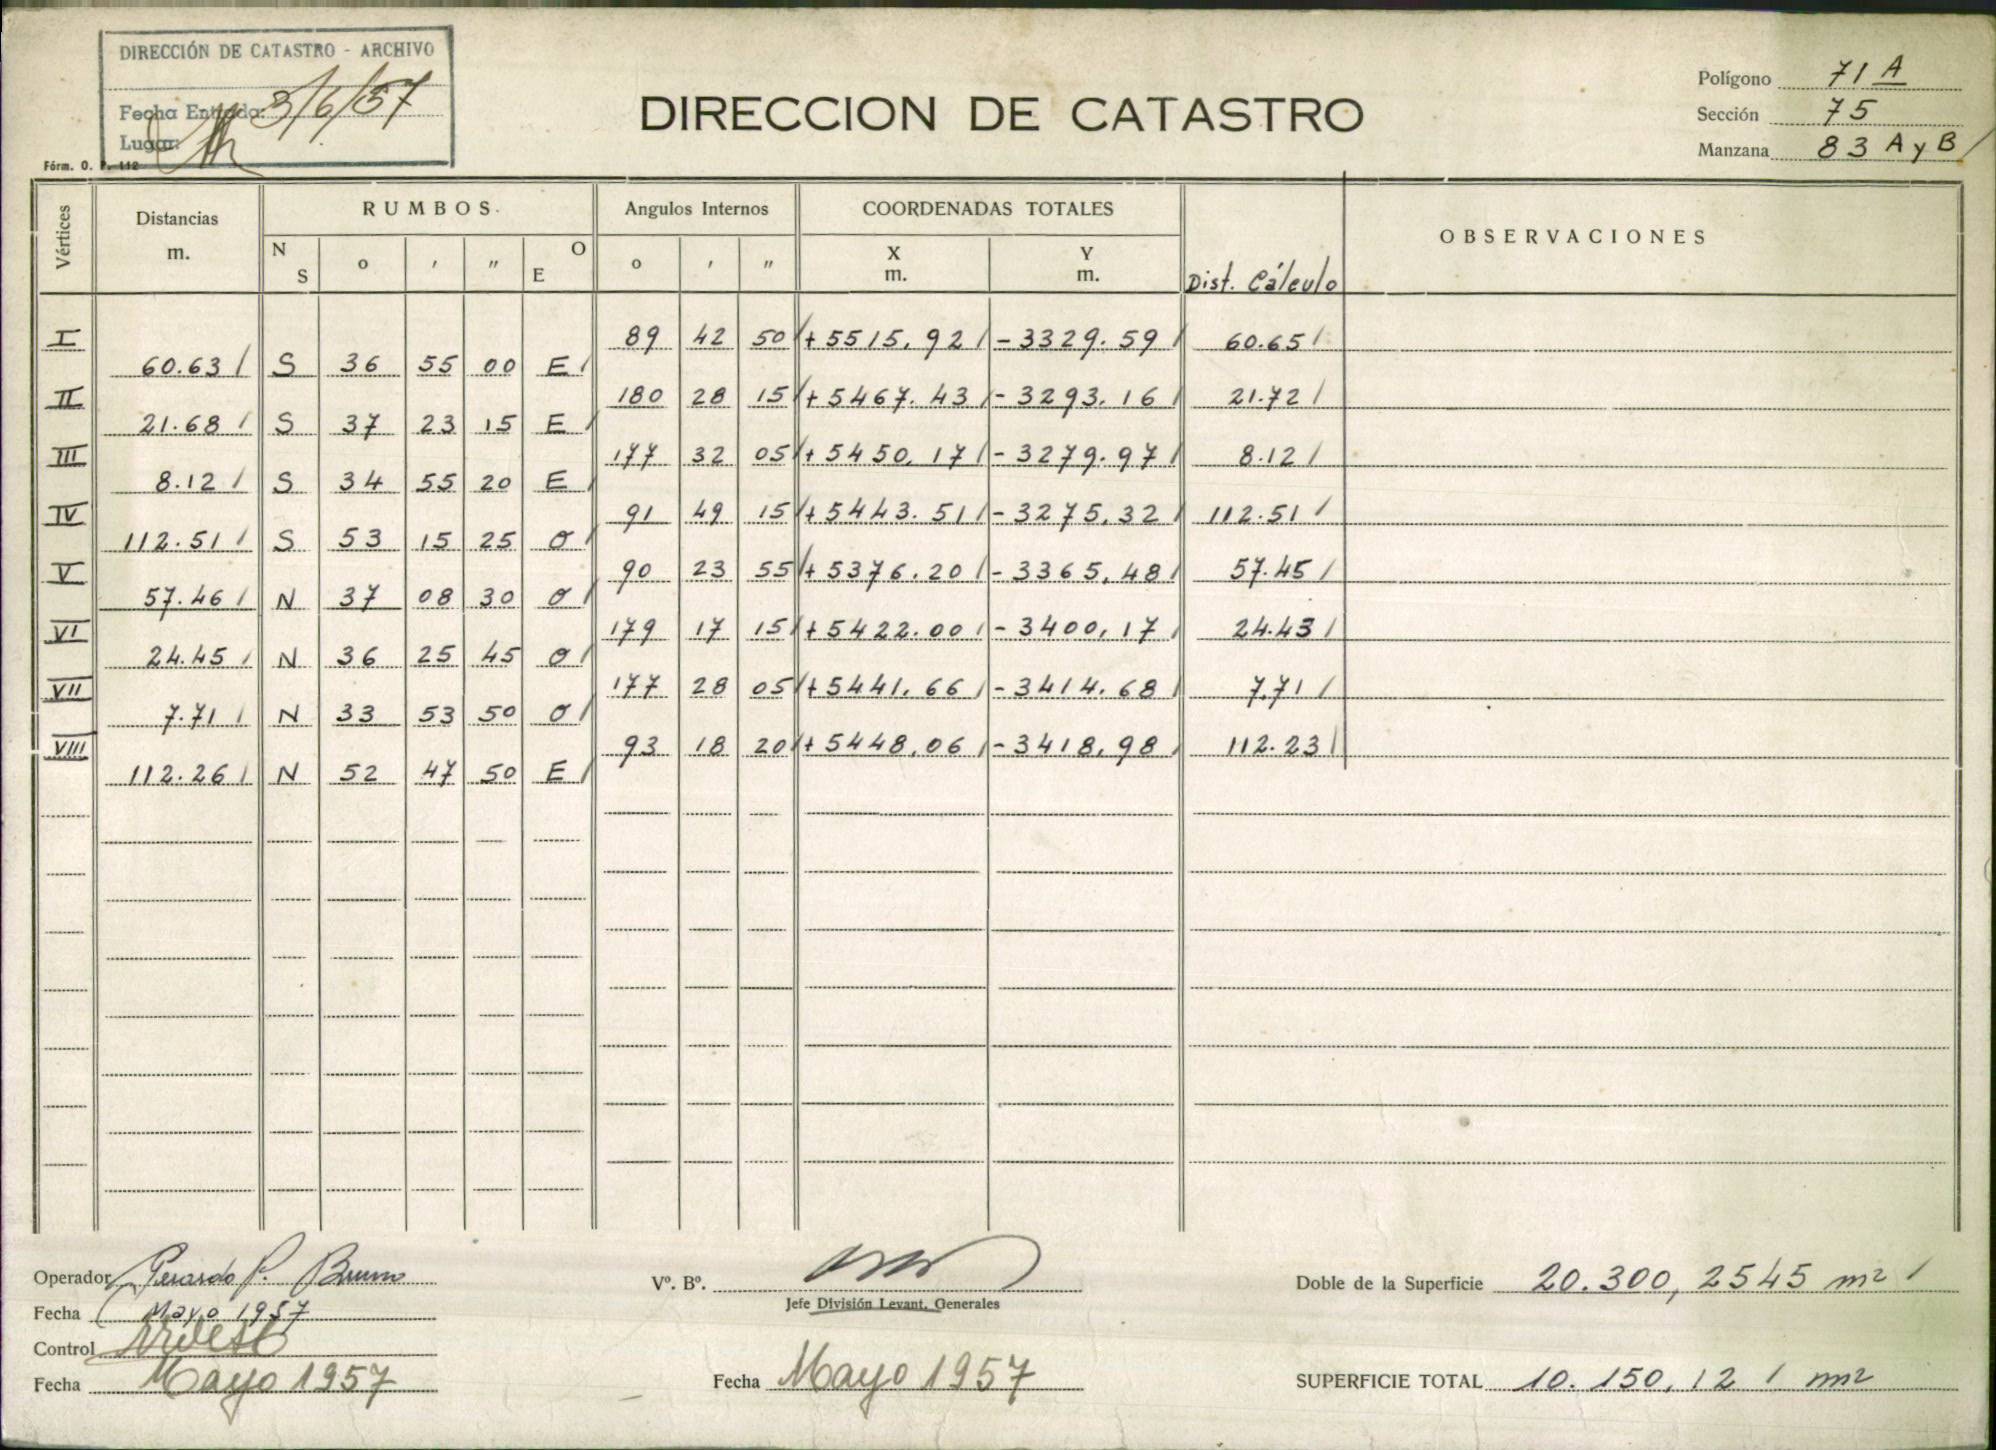 DIRECCIÓN DE CATASTRO - ARCHIVO
Fecha Entrada: 3/6/57
Lugar:
Fórm. O. P. 112
DIRECCION DE CATASTRO
Polígono 71 A
Sección 75
Manzana 83 A y B /
Vértices Distancias m. RUMBOS. Angulos Internos COORDENADAS TOTALES Dist. Cálculo OBSERVACIONES
N S o ' " O E o ' " X m. Y m.
I 89 42 50 / + 5515.92 / - 3329.59 / 60.65 /
60.63 / S 36 55 00 E /
II 180 28 15 / + 5467.43 / - 3293.16 / 21.72 /
21.68 / S 37 23 15 E /
III 177 32 05 / + 5450.17 / - 3279.97 / 8.12 /
8.12 / S 34 55 20 E /
IV 91 49 15 / + 5443.51 / - 3275,32 / 112.51 /
112.51 / S 53 15 25 O /
V 90 23 55 / + 5376.20 / - 3365,48 / 57.45 /
57.46 / N 37 08 30 O /
VI 179 17 15 / + 5422.00 / - 3400,17 / 24.43 /
24.45 / N 36 25 45 O /
VII 177 28 05 / + 5441.66 / - 3414.68 / 7.71 /
7.71 / N 33 53 50 O /
VIII 93 18 20 / + 5448,06 / - 3418,98 / 112.23 /
112.26 / N 52 47 50 E /
Operador Gerardo P. Bruno
Fecha Mayo 1957
Control
Fecha Mayo 1957
Vº. Bº.
Jefe División Levant. Generales
Fecha Mayo 1957
Doble de la Superficie 20.300,2545 m2 /
SUPERFICIE TOTAL 10.150,12 / m2